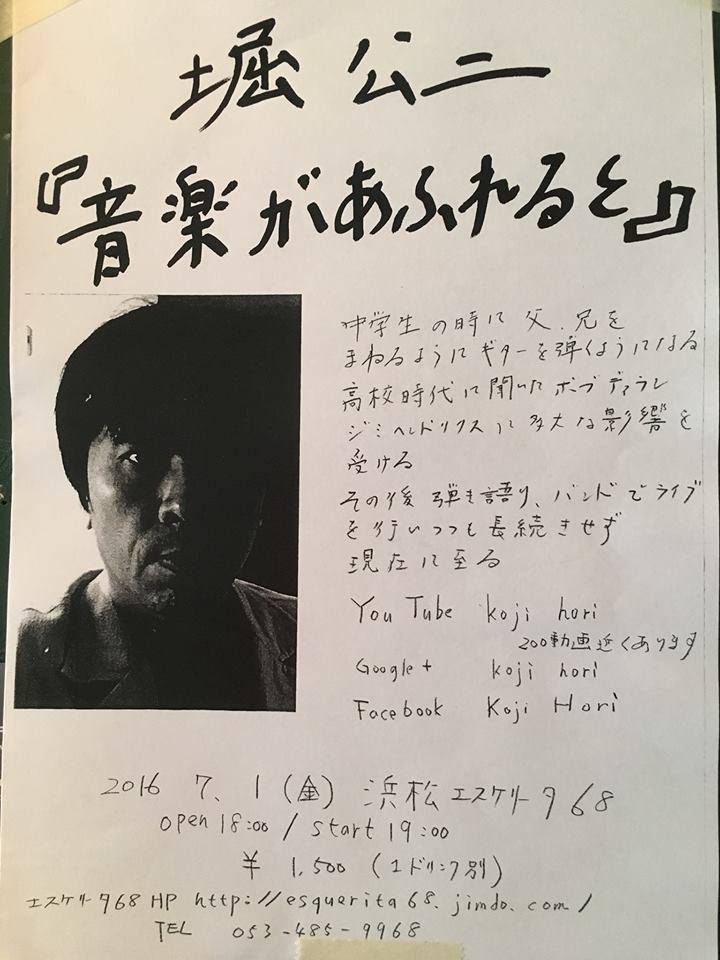 堀 公二
『音楽があふれると』
中学生の時に 父、兄を
まねるようにギターを弾くようになる
高校時代に聞いたボブディラン
ジミヘンドリクスに多大な影響を
受ける
その後 弾き語り、バンドでライブ
を行いつつも長続きせず
現在に至る
YouTube koji hori
200動画近くあります
Google+ koji hori
Facebook Koji Hori
2016 7. 1 (金) 浜松エスケリータ68
open 18:00 / start 19:00
¥ 1,500 (1ドリンク別)
エスケリータ68 HP http://esquerita68.jimdo.com/
TEL 053-485-9968